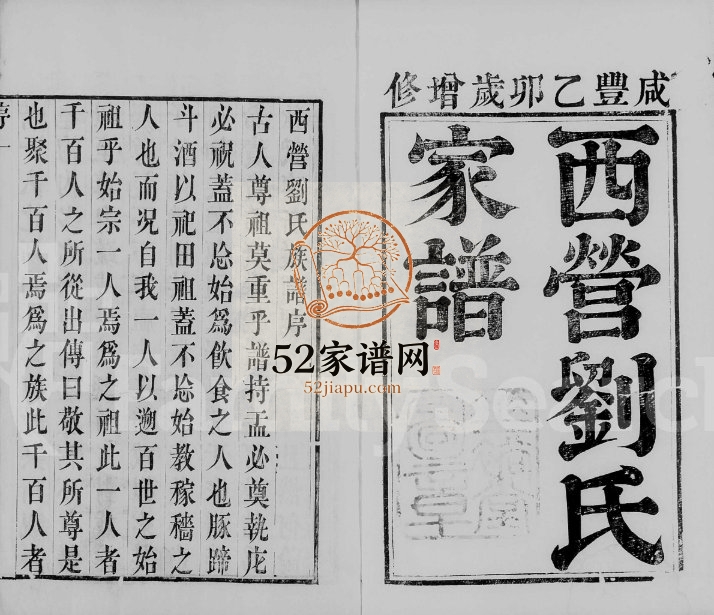 咸豐乙卯歲增修
西營劉氏
家譜
西營劉氏族譜序
古人尊祖莫重乎譜持盂必奠執庀
必祝蓋不忩始為飲食之人也豚蹄
斗酒以祀田祖蓋不忩始教稼穡之
人也而况自我一人以遡百世之始
祖乎始宗一人焉為之祖此一人者
千百人之所從出傳曰敬其所尊是
也聚千百人焉為之族此千百人者
序一
52家谱网
52jiapu.com
FamilySearch